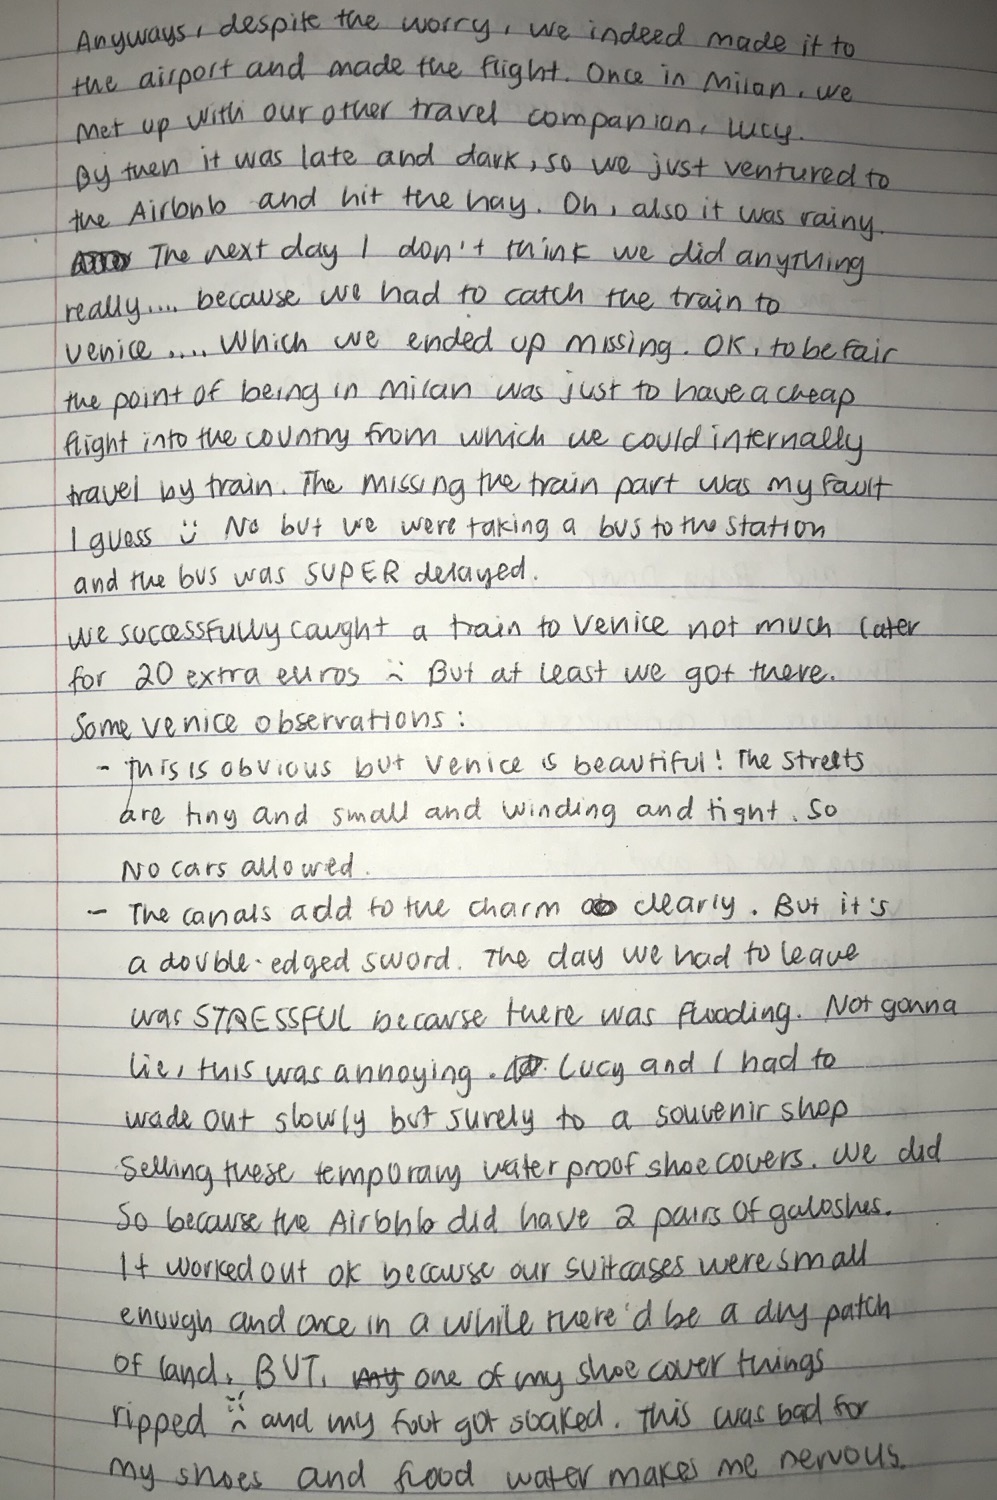 Anyways, despite the worry, we indeed made it to
the airport and made the flight. Once in Milan, we
met up with our other travel companion, Lucy.
By then it was late and dark, so we just ventured to
the Airbnb and hit the hay. Oh, also it was rainy.
The next day I don't think we did anything
really.... because we had to catch the train to
Venice .... Which we ended up missing. OK, to be fair
the point of being in Milan was just to have a cheap
flight into the country from which we could internally
travel by train. The missing the train part was my fault
I guess :) No but we were taking a bus to the station
and the bus was SUPER delayed.
We successfully caught a train to Venice not much later
for 20 extra euros :( But at least we got there.
Some Venice observations:
- This is obvious but Venice is beautiful! The streets
are tiny and small and winding and tight. So
No cars allowed.
- The canals add to the charm clearly. But it's
a double-edged sword. The day we had to leave
was STRESSFUL because there was flooding. Not gonna
lie, this was annoying. Lucy and I had to
wade out slowly but surely to a souvenir shop
selling these temporary waterproof shoe covers. We did
so because the Airbnb did have 2 pairs of galoshes.
It worked out ok because our suitcases were small
enough and once in a while there'd be a dry patch
of land. BUT, one of my shoe cover things
ripped :( and my foot got soaked. This was bad for
my shoes and flood water makes me nervous.